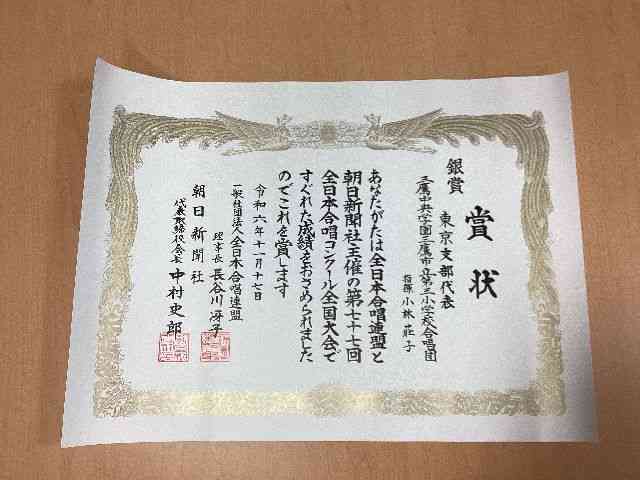 賞状
銀賞
東京支部代表
三鷹中央学園三鷹市立第三小学校合唱団
指揮 小林 莊子
あなたがたは全日本合唱連盟と
朝日新聞社主催の第七十七回
全日本合唱コンクール全国大会で
すぐれた成績をおさめられました
のでこれを賞します
令和六年十一月十七日
一般社団法人全日本合唱連盟
理事長 長谷川 冴子
朝日新聞社
代表取締役会長 中村史郎